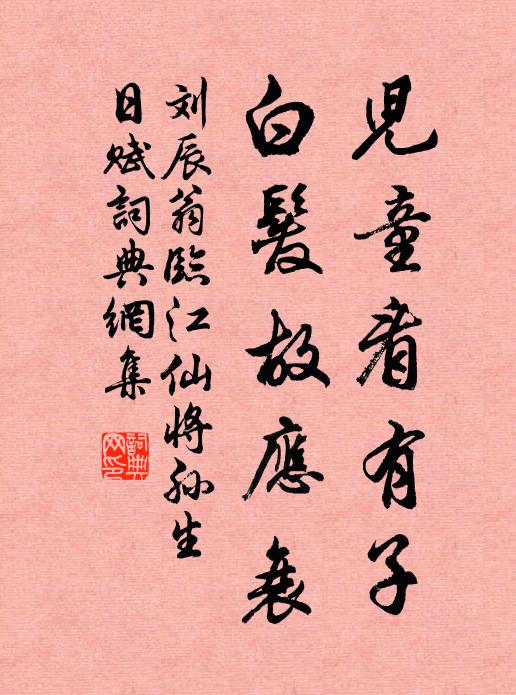 兒童看有子
白髮故應衰
刘辰翁臨江仙將孙生
日赋詞典網集
詞典網印